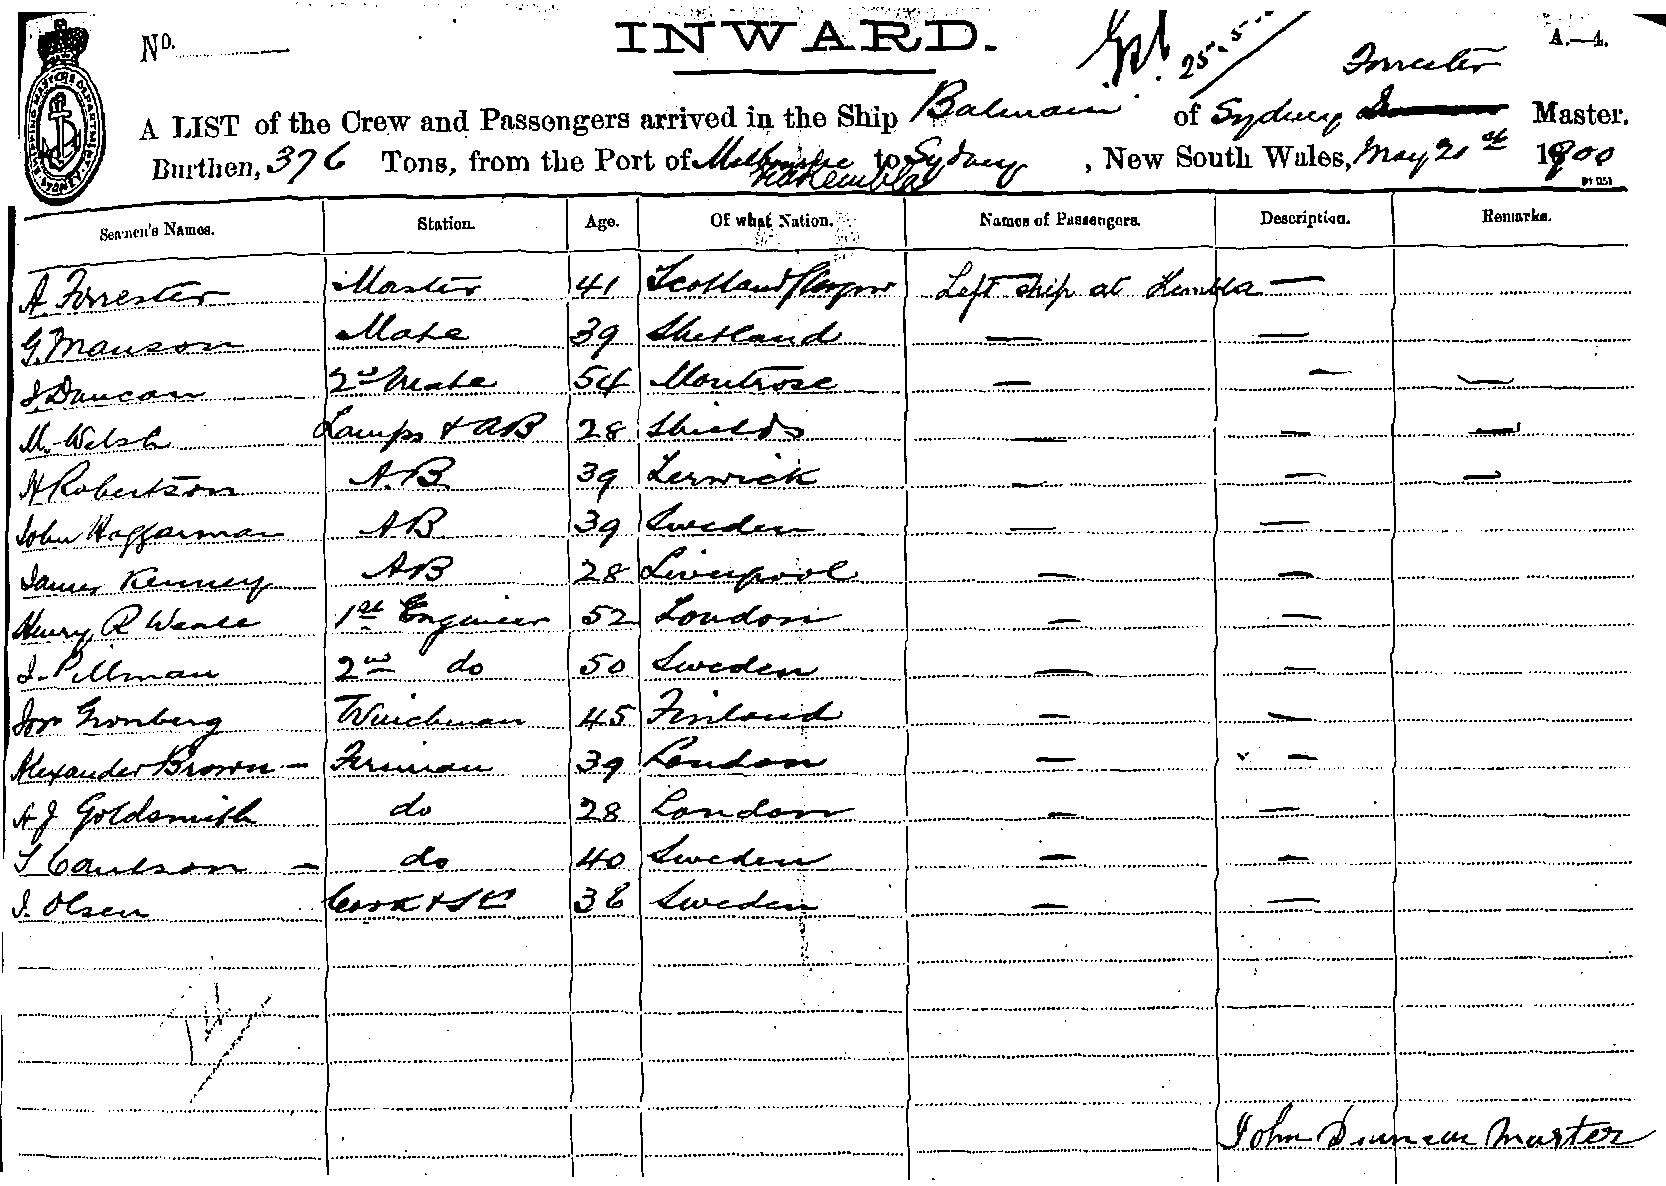 No.
INWARD.
25.5.
A.—4.
Forrester
A LIST of the Crew and Passengers arrived in the Ship Balmain of Sydney Master.
Burthen, 376 Tons, from the Port of Melbourne to Sydney, New South Wales, May 21st 1900
via Kembla
Seamen's Names. Station. Age. Of what Nation. Names of Passengers. Description. Remarks.
A. Forrester Master 41 Scotland Glasgow Left ship at Kembla —
G. Manson Mate 39 Shetland — —
J. Duncan 2nd Mate 54 Montrose — — —
M. Welsh Lamps & AB 28 Shields — — —
H Robertson A.B. 39 Lerwick — — —
John Haggarman AB 39 Sweden — —
James Kenney AB 28 Liverpool — —
Henry R Weale 1st Engineer 52 London — —
J. Pillman 2nd do 50 Sweden — —
Gronberg Winchman 45 Finland — —
Alexander Brown — Fireman 39 London — —
A J Goldsmith do 28 London — —
Caulson — do 40 Sweden — —
J. Olsen Cook & St 38 Sweden — —
14
John Duncan Master